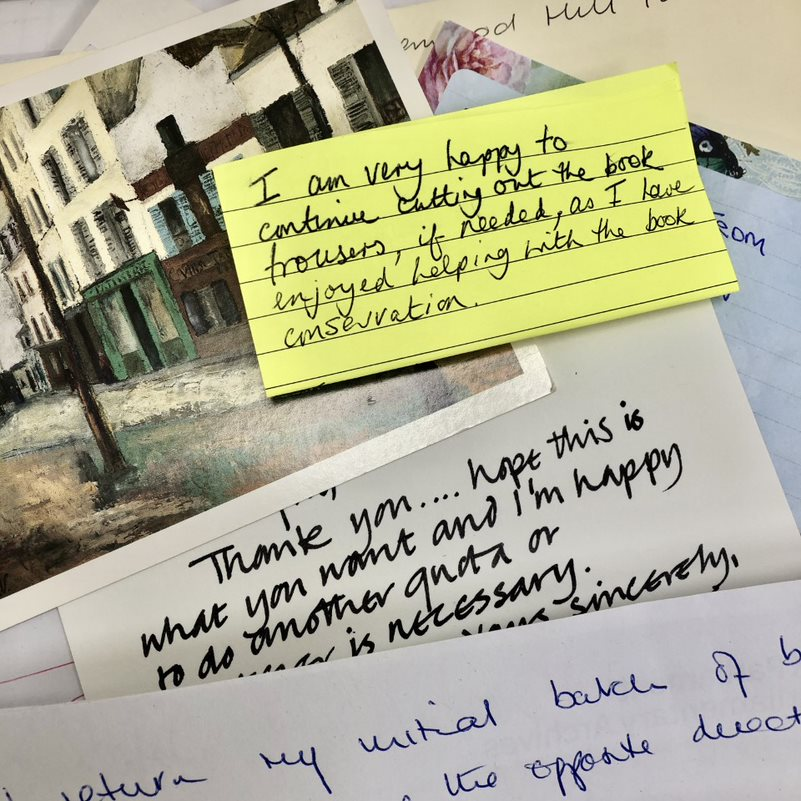 Hill
I am very happy to
continue cutting out the book
trousers, if needed, as I have
enjoyed helping with the book
conservation.
Team
Thank you.... hope this is
what you want and I'm happy
to do another quota or
is necessary.
Yours sincerely,
return my initial batch of b
the opposite direct